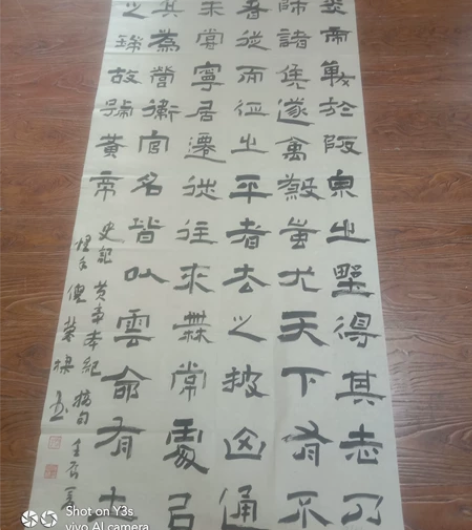 炎帝戰於阪泉之墅得其志乃
師諸侯遂禽殺蚩尤天下有不
者從而征之平者去之披山通
未嘗寧居遷徙往來無常處以
兵為營衛官名皆以雲命有土
之瑞故號黃帝
史記黃帝本紀摘句壬辰夏
Shot on Y3s
vivo AI camera